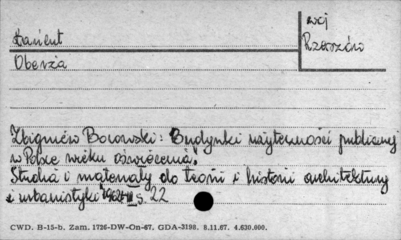 woj
Łańcut
Rzeszów
Oberża
Zbigniew Borowski: Budynki użyteczności publicznej
w Polsce wieku oświecenia.
Studia i materiały do teorii i historii architektury
i urbanistyki s. 22
CWD. B-15-b. Zam. 1726-DW-On-67. GDA-3198. 8.11.67. 4.630.000.